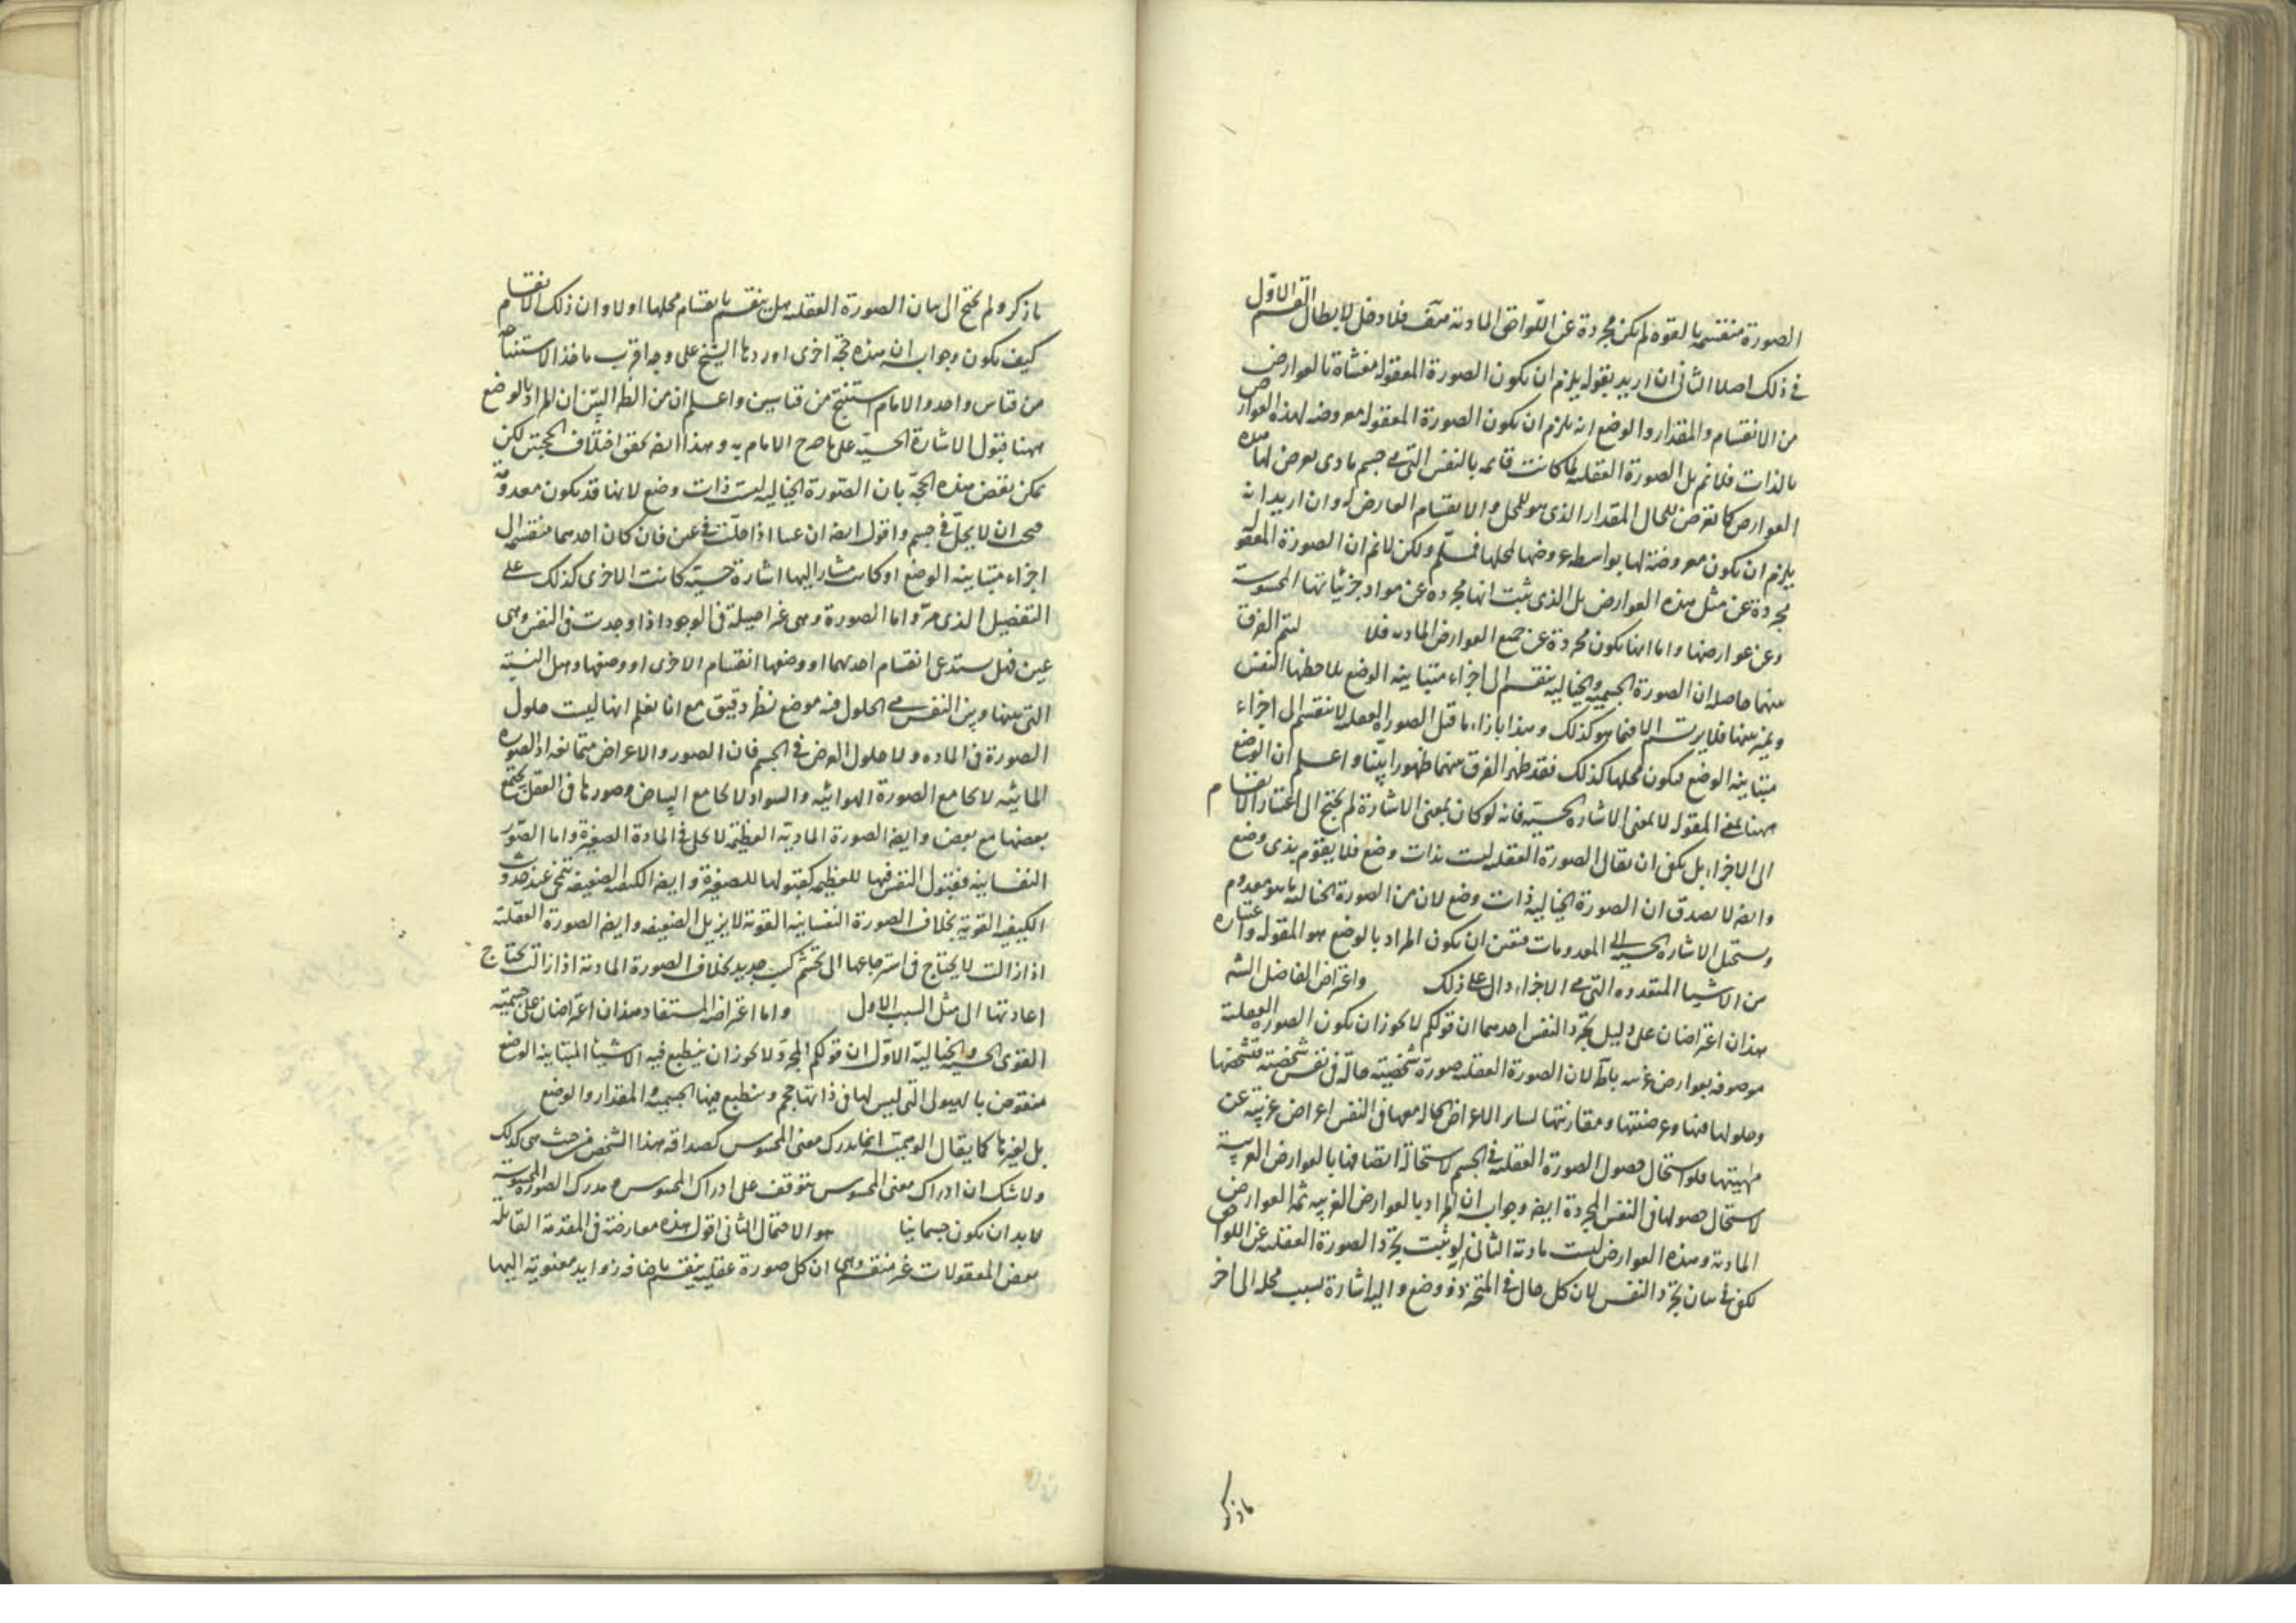 الصورة منقسمة بالقوة لم يكن مجردة عن اللواحق المادية هف فلا دخل لابطال القسم الاول
في ذلك اصلا الثاني ان اريد بقوله يلزم ان يكون الصورة المعقولة مغشاة بالعوارض
من الانقسام والمقدار والوضع انه يلزم ان يكون الصورة المعقولة معروضة لهذه العوارض
بالذات فلانم بل الصورة العقلية لما كانت قائمة بالنفس التي هي جسم مادي يعرض لها هذه
العوارض كما تعرض للحال المقدار الذي هو للمحل والانقسام العارض له وان اريد انه
يلزم ان يكون معروضة لها بواسطة عروضها لمحلها فمسلم ولكن لانم ان الصورة المعقولة
مجردة عن مثل هذه العوارض بل الذي ثبت انها مجردة عن مواد جزئياتها المحسوسة
وعن عوارضها واما انها يكون مجردة عن جميع العوارض المادية فلا ليتم الفرق
بينهما حاصله ان الصورة الجسمية والخيالية ينقسم الى اجزاء متباينة الوضع بملاحظها النفس
ويميز بينها فلا يرتسم الا فيما هو كذلك وهذا بازاء ما قيل الصورة العقلية لا تنقسم الى اجزاء
متباينة الوضع فيكون محلها كذلك فقد ظهر الفرق بينهما ظهورا بيّنا واعلم ان الوضع
ههنا بمعنى المقولة لا بمعنى الاشارة الحسية فانه لو كان بمعنى الاشارة لم يحتج الى اعتبار الانقسام
الى الاجزاء بل يكفي ان يقال الصورة العقلية ليست بذات وضع فلا يقوم بذي وضع
وايضا لا يصدق ان الصورة الخيالية ذات وضع لان من الصورة الخيالية ما هو معدوم
ويستحيل الاشارة الحسية الى المعدومات فتعين ان يكون المراد بالوضع هو المقولة واعتباره
من الاشياء المتعددة التي هي الاجزاء دال على ذلك واعترض الفاضل الشه
هذان اعتراضان على دليل تجرد النفس احدهما ان قولكم لا يجوز ان يكون الصورة العقلية
موصوفة بعوارض غريبة باطل لان الصورة العقلية صورة شخصية حالة في نفس شخصية فتشخصها
وحلولها فيها وعرضيتها ومقارنتها لساير الاعراض الحالة معها في النفس اعراض غريبة عن
مهيتها فلو استحال حصول الصورة العقلية في الجسم لاستحالة اتصافها بالعوارض الغريبة
لاستحال حصولها في النفس المجردة ايضا وجوابه ان المراد بالعوارض الغريبة ثمة العوارض
المادية وهذه العوارض ليست مادية الثاني لو ثبت تجرد الصورة العقلية عن اللواحق
لكفى في بيان تجرد النفس لان كل حال في المتحيز ذو وضع واليه اشارة بسبب محله الى اخر
ماذكر
ماذكر ولم يحتج الى بيان الصورة العقلية هل ينقسم بانقسام محلها او لا وان ذلك الانقسام
كيف يكون وجوابه ان هذه حجة اخرى اوردها الشيخ على وجه اقرب ماخذا لاستنتاجه
من قياس واحد والامام استنتج من قياسين واعلم ان من الظ البيّن ان المراد بالوضع
ههنا قبول الاشارة الحسية على ما صرح الامام به وهذا ايضا يحقق اختلاف الحجتين لكن
يمكن نقض هذه الحجة بان الصورة الخيالية ليست ذات وضع لانها قد يكون معدومة
فيجب ان لا يحل في جسم واقول ايضا ان عينا اذا حلت في عين فان كان احدهما منقسمة الى
اجزاء متباينة الوضع او كانت مشارا اليها اشارة حسية كانت الاخرى كذلك على
التفصيل الذي مر واما الصورة وهي غير اصيلة في الوجود اذا وجدت في النفس وهي
عين فهل يستدعى انقسام احديهما او وضعها انقسام الاخرى او وضعها وهل النسبة
التي بينها وبين النفس هي الحلول فيه موضع نظر دقيق مع انا نعلم انها ليست حلول
الصورة في المادة ولا حلول العرض في الجسم فان الصور والاعراض متمانعة اذ الصورة
المائية لا يجامع الصورة الهوائية والسواد لا يجامع البياض وصورها في العقل يجتمع
بعضها مع بعض وايضا الصورة المادية العظيمة لا يحل في المادة الصغيرة واما الصور
النفسانية فقبول النفس فيها للعظيمة كقبولها للصغيرة وايضا الكيفية الضعيفة تنمحي عند حدوث
الكيفية القوية بخلاف الصورة النفسانية القوية لا يزيل الضعيفة وايضا الصورة العقلية
اذا زالت لا يحتاج في استرجاعها الى تجشم كسب جديد بخلاف الصورة المادية اذا زالت يحتاج
اعادتها الى مثل السبب الاول واما اعتراضه المستفاد هذان اعتراضان على جسمية
القوى الحسية والخيالية الاول ان قولكم المجرد لا يجوز ان ينطبع فيه الاشياء المتباينة الوضع
منقوض بالهيولى التي ليس لها في ذاتها حجم وينطبع فيها الجسمية والمقدار والوضع
بل لغيرها كما يقال الوهمية انما يدرك معنى المحسوس كصداقة هذا الشخص من حيث هي كذلك
ولا شك ان ادراك معنى المحسوس يتوقف على ادراك المحسوس ومدرك الصورة المحسوسة
لابد ان يكون جسمانيا هو الاحتمال الثاني اقول هذه معارضة في المقدمة القائلة
بعض المعقولات غير منقسم وهي ان كل صورة عقلية ينقسم باضافة زوايد معنوية اليها